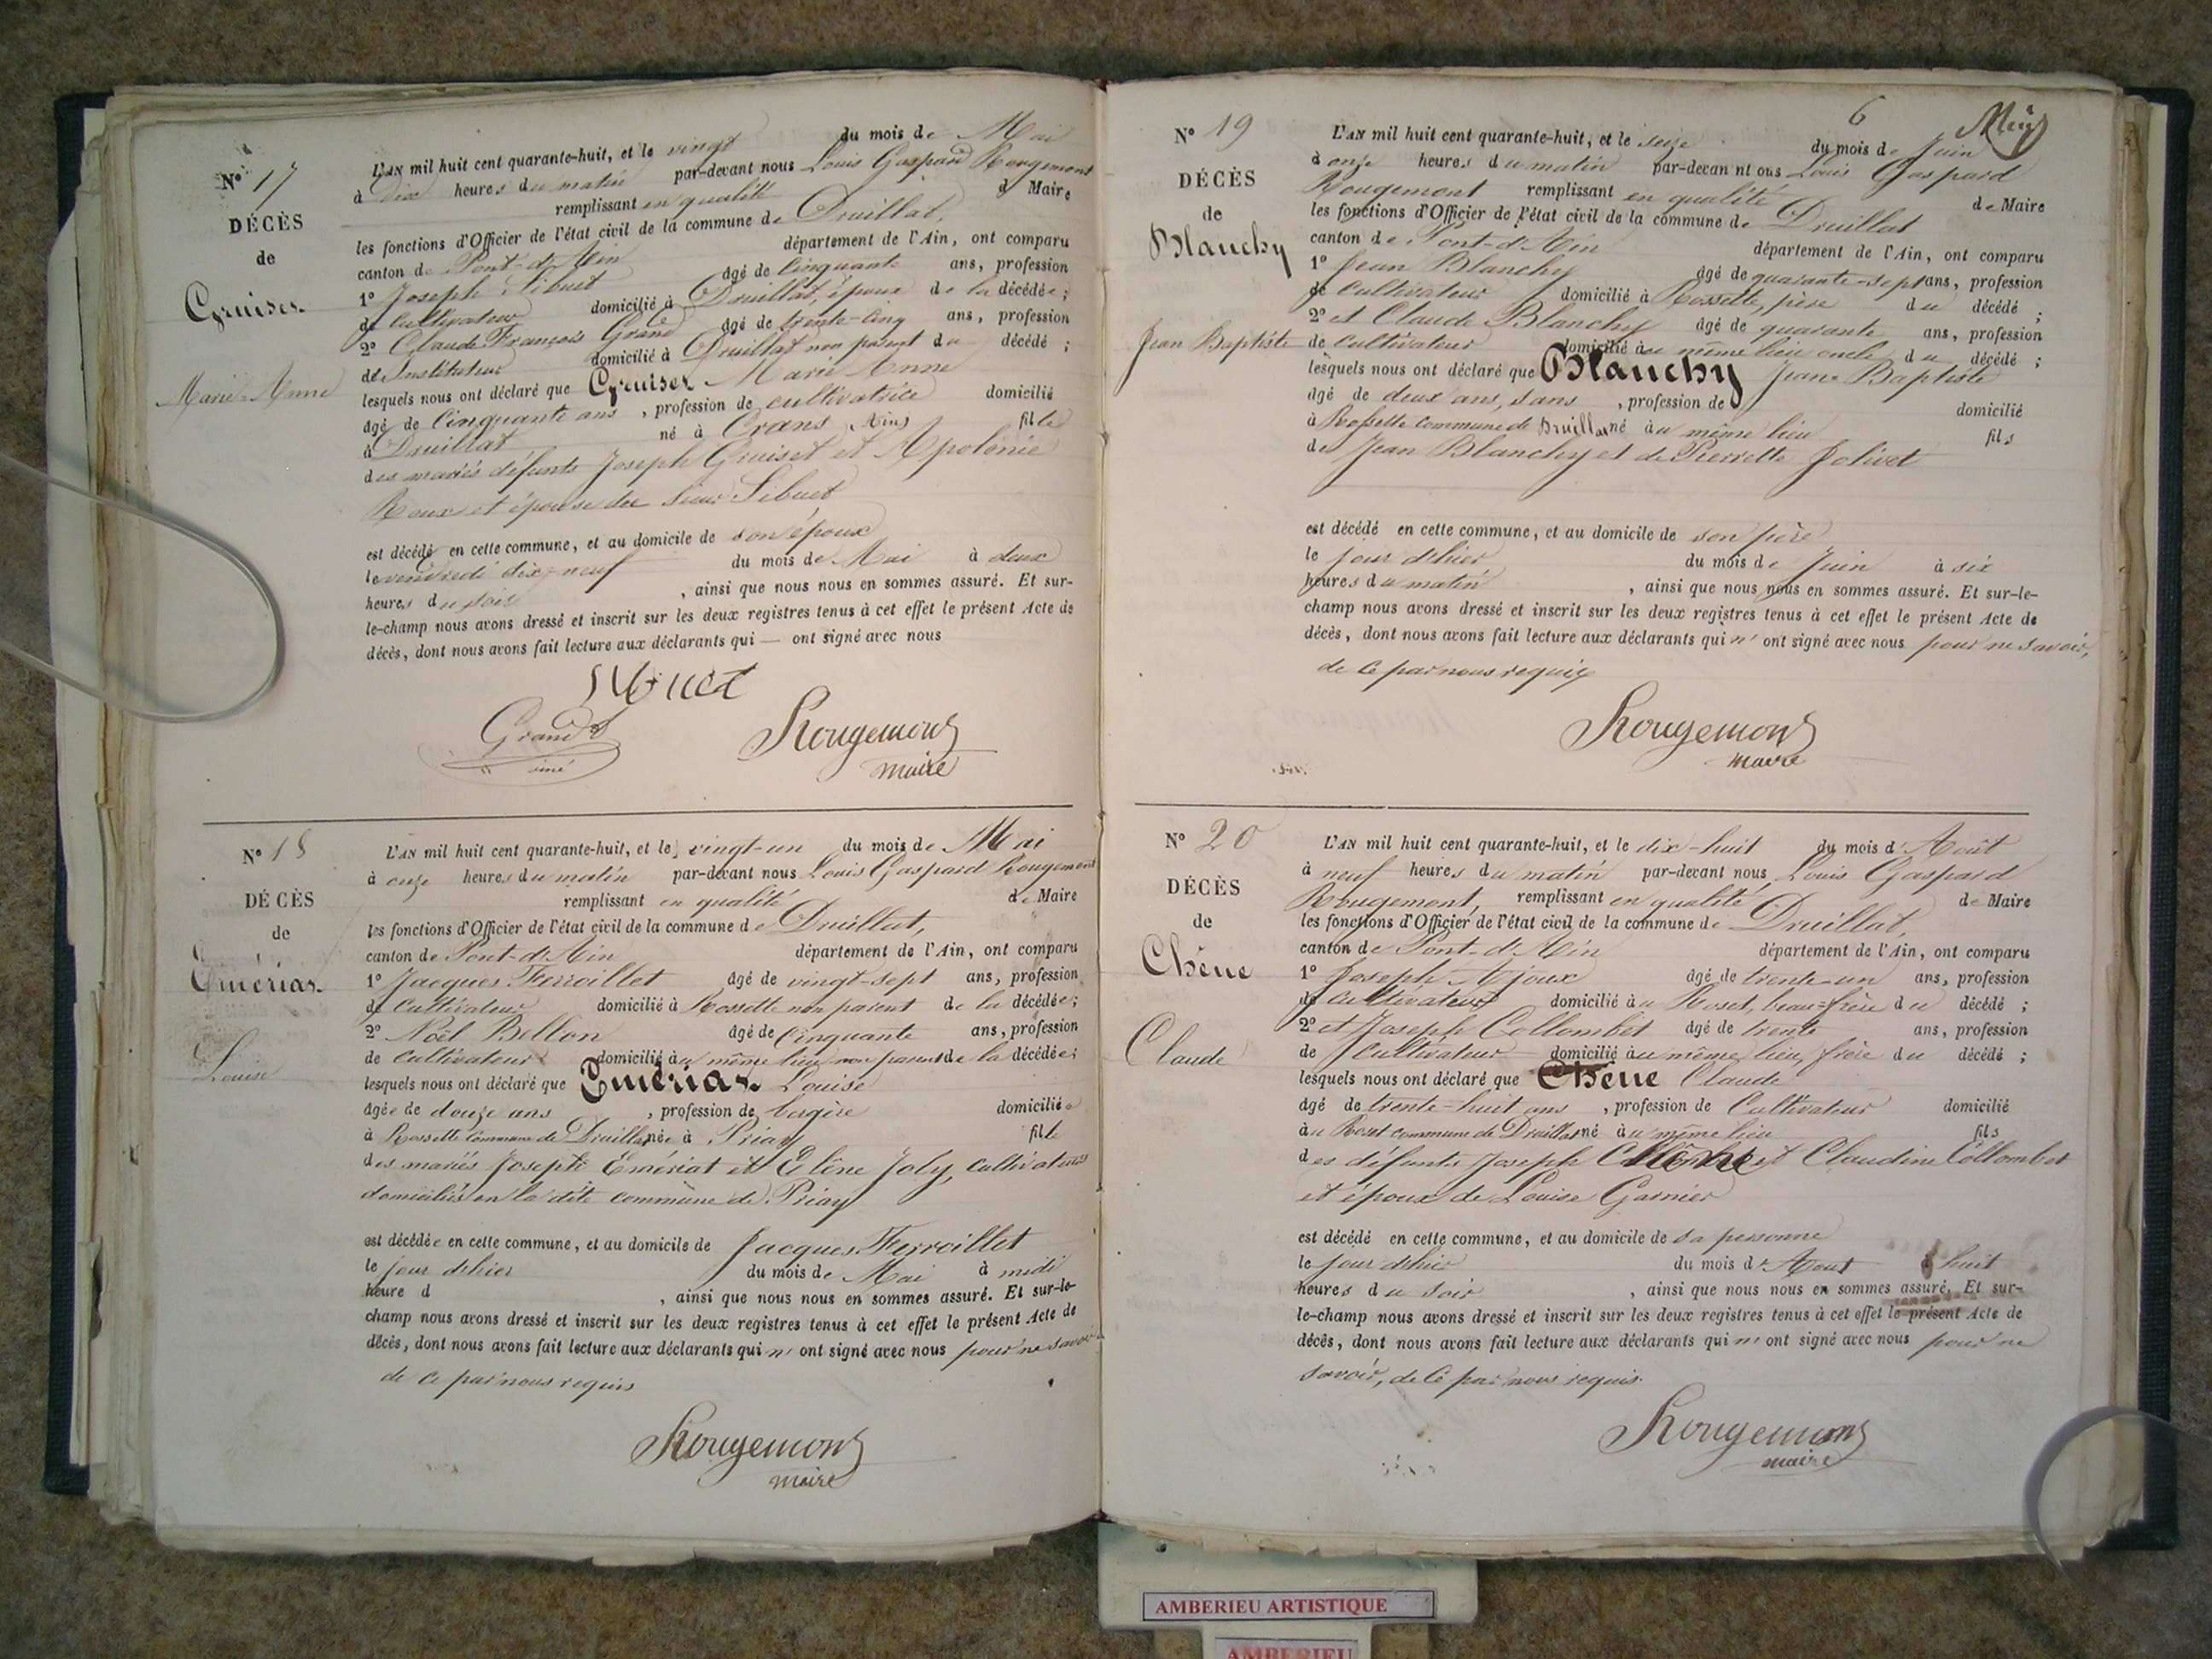 Nº 17
DÉCÈS
de
Gruiset
Marie-Anne
L'AN mil huit cent quarante-huit, et le vingt du mois de Mai
à Dix heures du matin par-devant nous Louis Gaspard Rougemont
remplissant en qualité d Maire
les fonctions d'Officier de l'état civil de la commune de Druillat,
canton de Pont-d'Ain département de l'Ain, ont comparu
1º Joseph Sibuet âgé de Cinquante ans, profession
de Cultivateur domicilié à Druillat, époux de la décédée;
2º Claude François Grand âgé de trente-cinq ans, profession
de Instituteur domicilié à Druillat non parent du décédé;
lesquels nous ont déclaré que Gruiset Marie Anne
âgé de Cinquante ans, profession de cultivatrice domicilié
à Druillat né à Crans (Ain) fille
des mariés défunts Joseph Gruiset et Apolonie
Roux et épouse du sieur Sibuet
est décédé en cette commune, et au domicile de son époux
le vendredi dix-neuf du mois de Mai à deux
heures du soir, ainsi que nous nous en sommes assuré. Et sur-
le-champ nous avons dressé et inscrit sur les deux registres tenus à cet effet le présent Acte de
décès, dont nous avons fait lecture aux déclarants qui — ont signé avec nous
Sibuet
Grand
Rougemont
maire
Nº 18
DÉCÈS
de
Emériat
Louise
L'AN mil huit cent quarante-huit, et le vingt-un du mois de Mai
à onze heures du matin par-devant nous Louis Gaspard Rougemont
remplissant en qualité de Maire
les fonctions d'Officier de l'état civil de la commune de Druillat,
canton de Pont-d'Ain département de l'Ain, ont comparu
1º Jacques Ferroillet âgé de vingt-sept ans, profession
de Cultivateur domicilié à Rossette non parent de la décédée;
2º Noël Bellon âgé de Cinquante ans, profession
de Cultivateur domicilié au même lieu non parent de la décédée;
lesquels nous ont déclaré que Emériat Louise
âgée de douze ans, profession de bergère domiciliée
à Rossette Commune de Druillat née à Priay fille
des mariés Joseph Emériat et Elène Joly, cultivateurs
domiciliés en la dite commune de Priay
est décédée en cette commune, et au domicile de Jacques Ferroillet
le jour d'hier du mois de Mai à midi
heure d , ainsi que nous nous en sommes assuré. Et sur-le-
champ nous avons dressé et inscrit sur les deux registres tenus à cet effet le présent Acte de
décès, dont nous avons fait lecture aux déclarants qui n' ont signé avec nous pour ne savoir
de ce par nous requis
Rougemont
maire
6
Nº 19
DÉCÈS
de
Blanchy
Jean Baptiste
L'AN mil huit cent quarante-huit, et le seize du mois de Juin
à onze heures du matin par-devan nt ous Louis Gaspard
Rougemont remplissant en qualité de Maire
les fonctions d'Officier de l'état civil de la commune de Druillat
canton de Pont-d'Ain département de l'Ain, ont comparu
1º Jean Blanchy âgé de quarante-sept ans, profession
de Cultivateur domicilié à Rossette, père du décédé;
2º et Claude Blanchy âgé de quarante ans, profession
de Cultivateur domicilié au même lieu oncle du décédé;
lesquels nous ont déclaré que Blanchy Jean Baptiste
âgé de deux ans, sans, profession de domicilié
à Rossette Commune de Druillat né au même lieu fils
de Jean Blanchy et de Pierrette Jolivet
est décédé en cette commune, et au domicile de son père
le jour d'hier du mois de Juin à six
heures du matin, ainsi que nous nous en sommes assuré. Et sur-le-
champ nous avons dressé et inscrit sur les deux registres tenus à cet effet le présent Acte de
décès, dont nous avons fait lecture aux déclarants qui n' ont signé avec nous pour ne savoir,
de ce par nous requis
Rougemont
maire
Nº 20
DÉCÈS
de
Chêne
Claude
L'AN mil huit cent quarante-huit, et le dix-huit du mois d'Août
à neuf heures du matin par-devant nous Louis Gaspard
Rougemont, remplissant en qualité de Maire
les fonctions d'Officier de l'état civil de la commune de Druillat,
canton de Pont-d'Ain département de l'Ain, ont comparu
1º Joseph Ajoux âgé de trente-un ans, profession
de Cultivateur domicilié au Roset, beau-frère du décédé;
2º et Joseph Collombet âgé de trente ans, profession
de Cultivateur domicilié au même lieu, frère du décédé;
lesquels nous ont déclaré que Chêne Claude
âgé de trente-huit ans, profession de Cultivateur domicilié
au Roset commune de Druillat né au même lieu fils
des défunts Joseph Chêne et Claudine Collombet
et époux de Louise Garnier
est décédé en cette commune, et au domicile de sa personne
le jour d'hier du mois d'Aout à huit
heures du soir, ainsi que nous nous en sommes assuré. Et sur-
le-champ nous avons dressé et inscrit sur les deux registres tenus à cet effet le présent Acte de
décès, dont nous avons fait lecture aux déclarants qui n' ont signé avec nous pour ne
savoir, de ce par nous requis
Rougemont
maire
AMBERIEU ARTISTIQUE
AMBERIEU